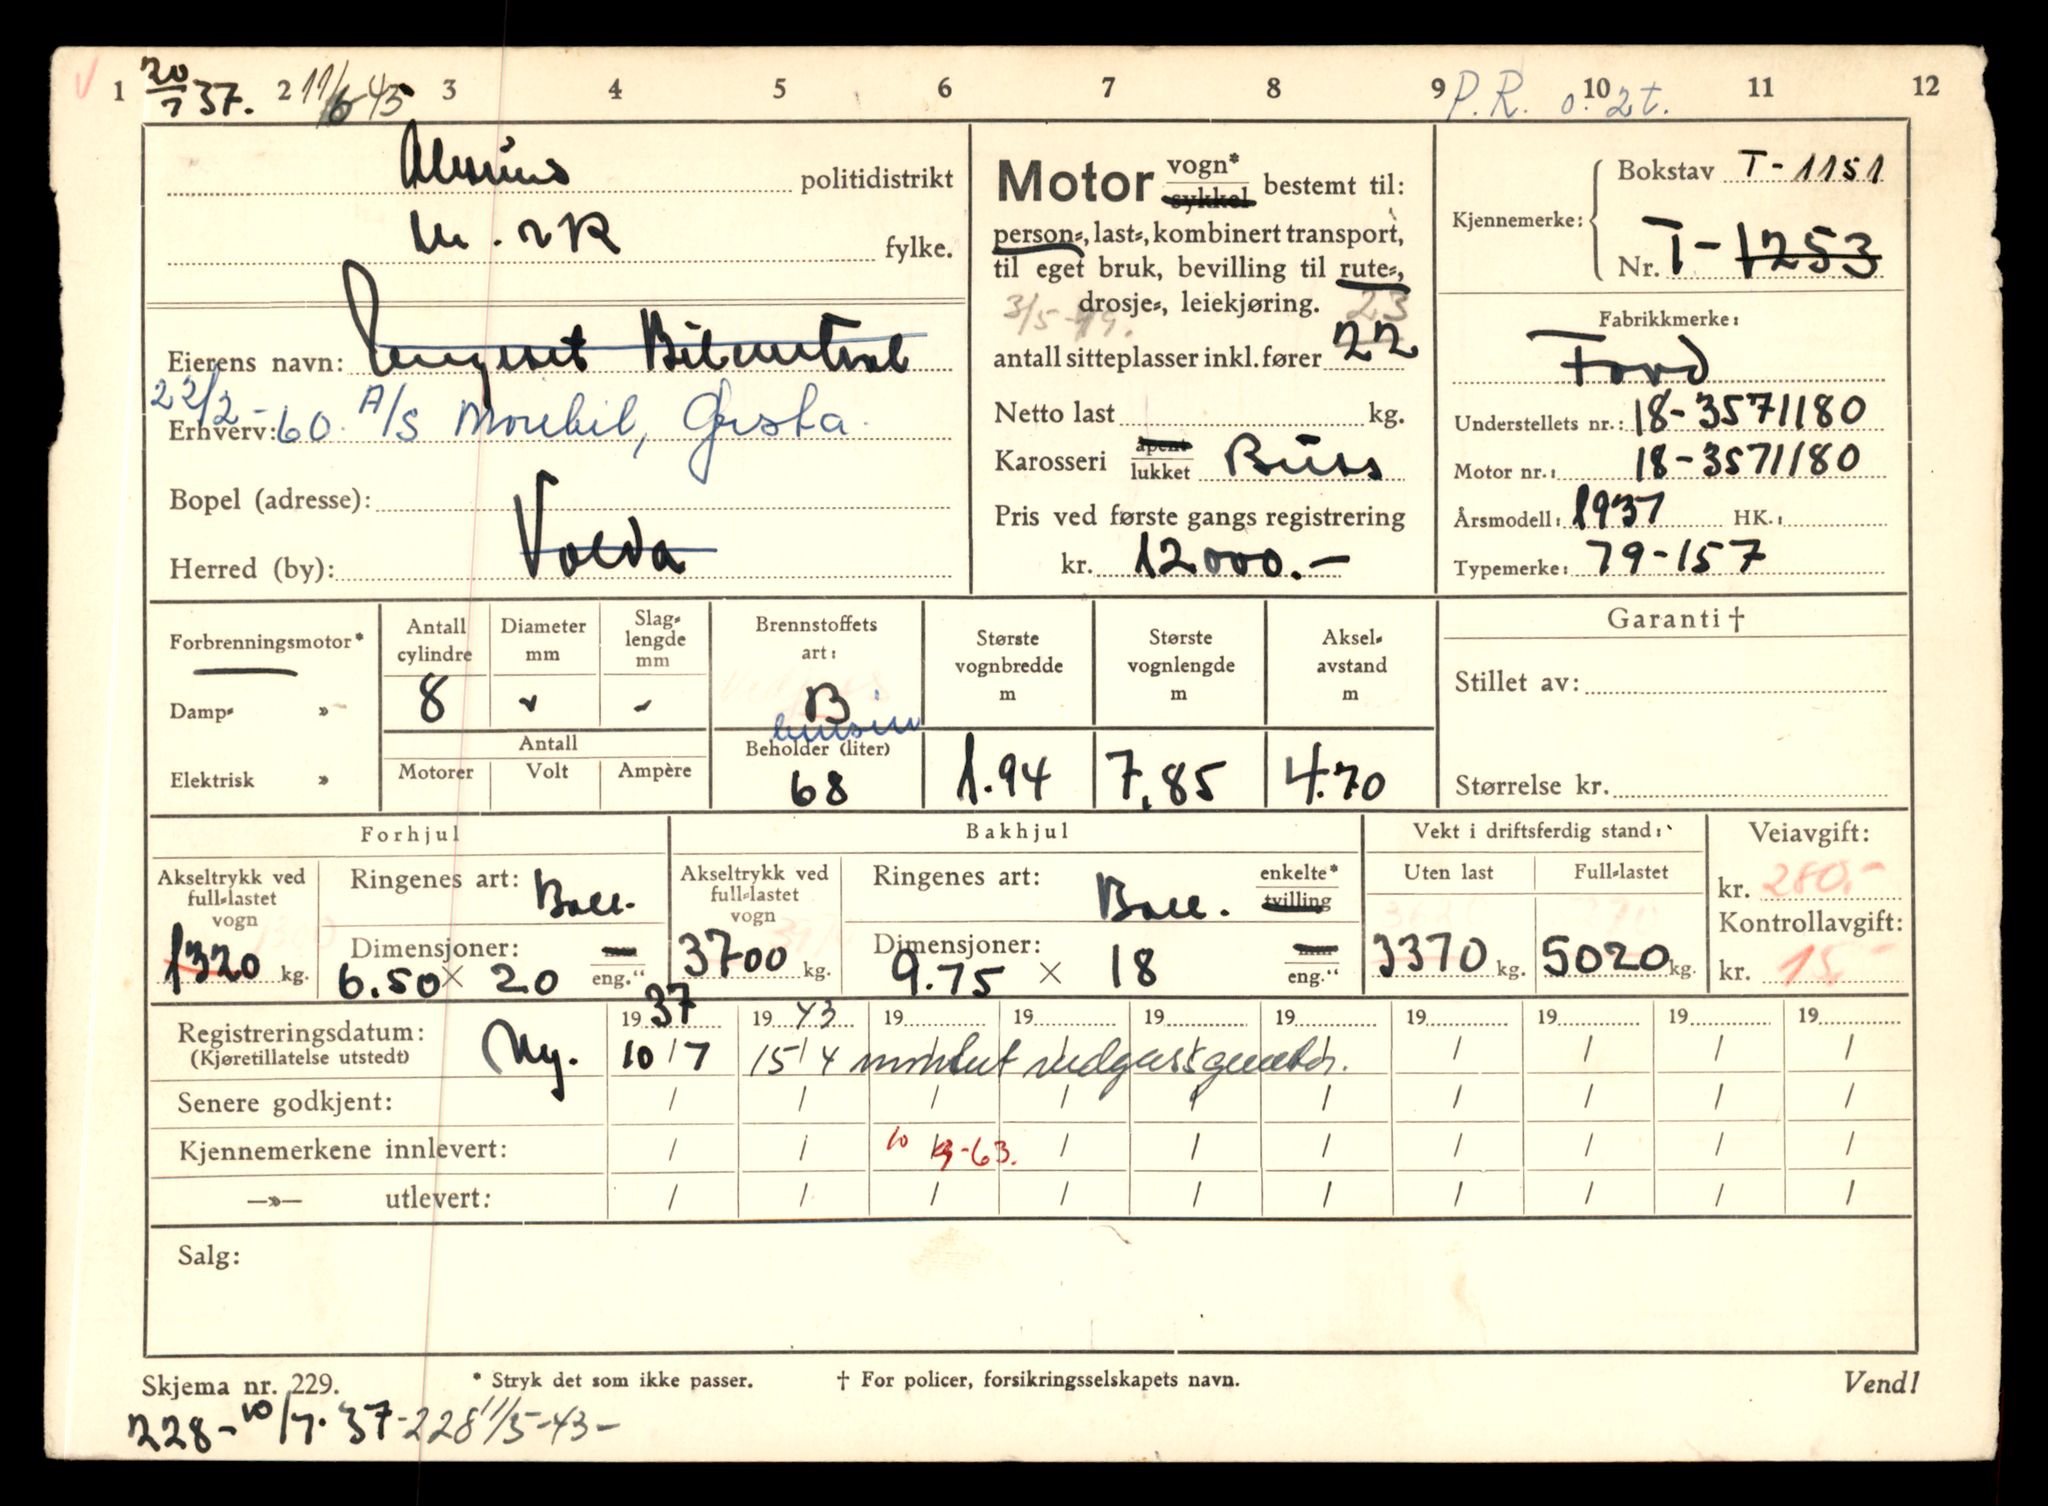 1 20/7 37. 2 11/6-45 3 4 5 6 7 8 9 P.R. 10 o. 2t. 11 12
politidistrikt
M. & R fylke.
Eierens navn: Bilcentral
22/2-60. A/S Mørebil, Ørsta.
Erhverv:
Bopel (adresse):
Herred (by): Volda
Motor vogn* sykkel bestemt til:
person-, last-, kombinert transport,
til eget bruk, bevilling til rute-,
drosje-, leiekjøring. 23
3/5-49.
antall sitteplasser inkl. fører 22
Netto last kg.
Karosseri åpent lukket Buss
Pris ved første gangs registrering
kr. 12000.-
Kjennemerke: Bokstav T-1151
Nr. T-1253
Fabrikkmerke:
Ford
Understellets nr.: 18-3571180
Motor nr.: 18-3571180
Årsmodell: 1937 HK.:
Typemerke: 79-157
Forbrenningsmotor*
Damp- »
Elektrisk »
Antall cylindre 8
Diameter mm
Slaglengde mm
Antall
Motorer Volt Ampère
Brennstoffets art: B
bensin
Beholder (liter) 68
Største vognbredde m 1.94
Største vognlengde m 7.85
Akselavstand m 4.70
Garanti †
Stillet av:
Størrelse kr.
Forhjul
Akseltrykk ved full-lastet vogn 1320 kg.
Ringenes art: Ball.
Dimensjoner: 6.50 × 20 mm eng."
Bakhjul
Akseltrykk ved full-lastet vogn 3700 kg.
Ringenes art: Ball. enkelte* tvilling
Dimensjoner: 9.75 × 18 mm eng."
Vekt i driftsferdig stand:
Uten last 3370 kg.
Full-lastet 5020 kg.
Veiavgift:
kr. 280.-
Kontrollavgift:
kr. 15.-
Registreringsdatum: Ny. 19 37 19 43 19 19 19 19 19 19 19 19
(Kjøretillatelse utstedt) 10/7 15/4 montert vedgassgenerator. / / / /
Senere godkjent: / / / / / / / / / /
Kjennemerkene innlevert: / / 10 -63. / / / / / / /
—»— utlevert: / / / / / / / / / /
Salg:
Skjema nr. 229. * Stryk det som ikke passer. † For policer, forsikringsselskapets navn. Vend!
228-10/7.37-228 11/5-43-